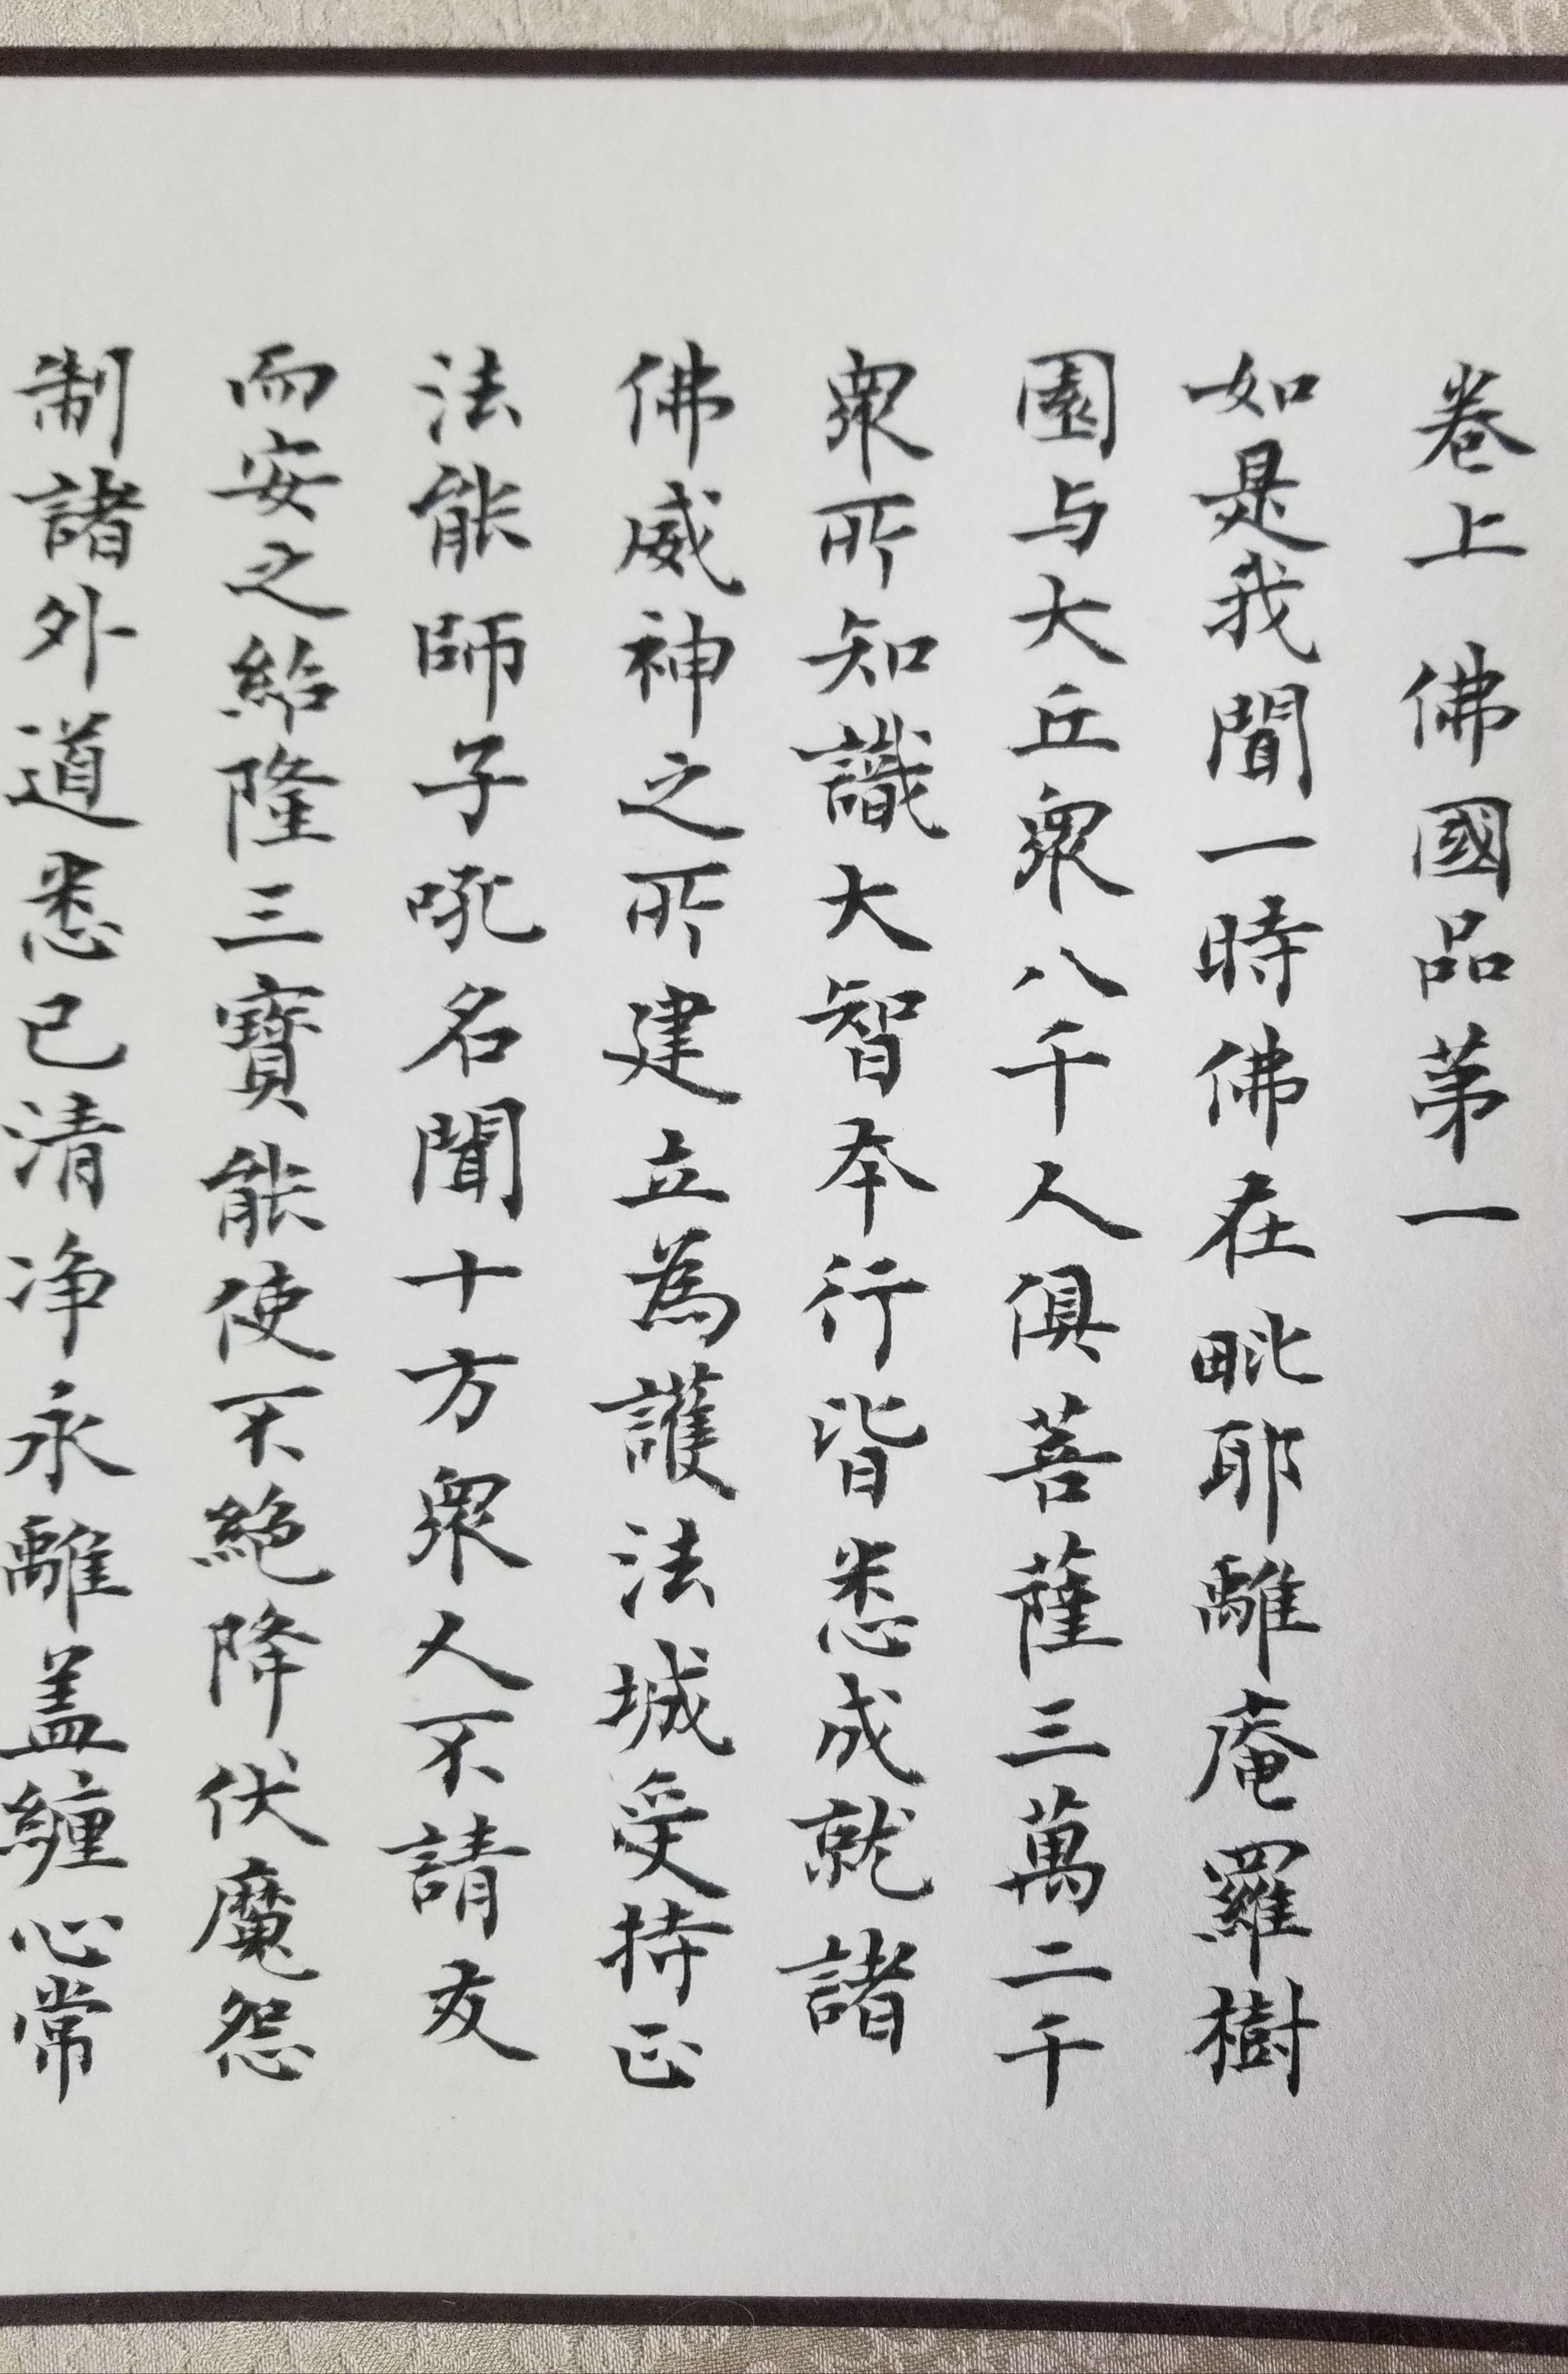 卷上 佛國品苐一
如是我聞一時佛在毗耶離庵羅樹
園与大丘衆八千人俱菩薩三萬二千
衆所知識大智本行皆悉成就諸
佛威神之所建立為護法城受持正
法能師子吼名聞十方衆人不請友
而安之紹隆三寶能使不絕降伏魔怨
制諸外道悉已清净永離盖纏心常